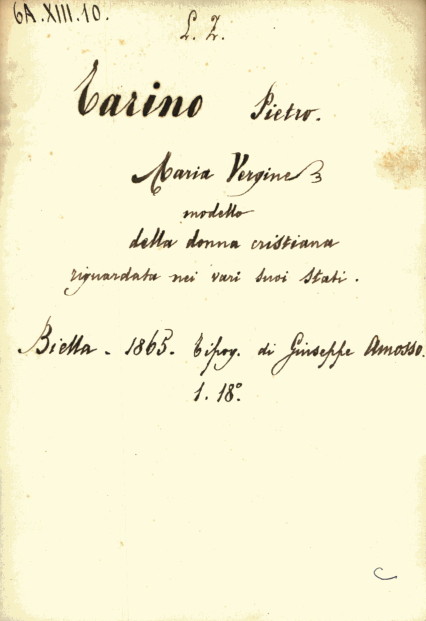 6A.XIII.10.
L. Z.
Tarino Pietro.
Maria Vergine
modello
della donna cristiana
riguardata nei vari suoi stati.
Biella - 1865. Tipog. di Giuseppe Amosso.
1. 18º
C